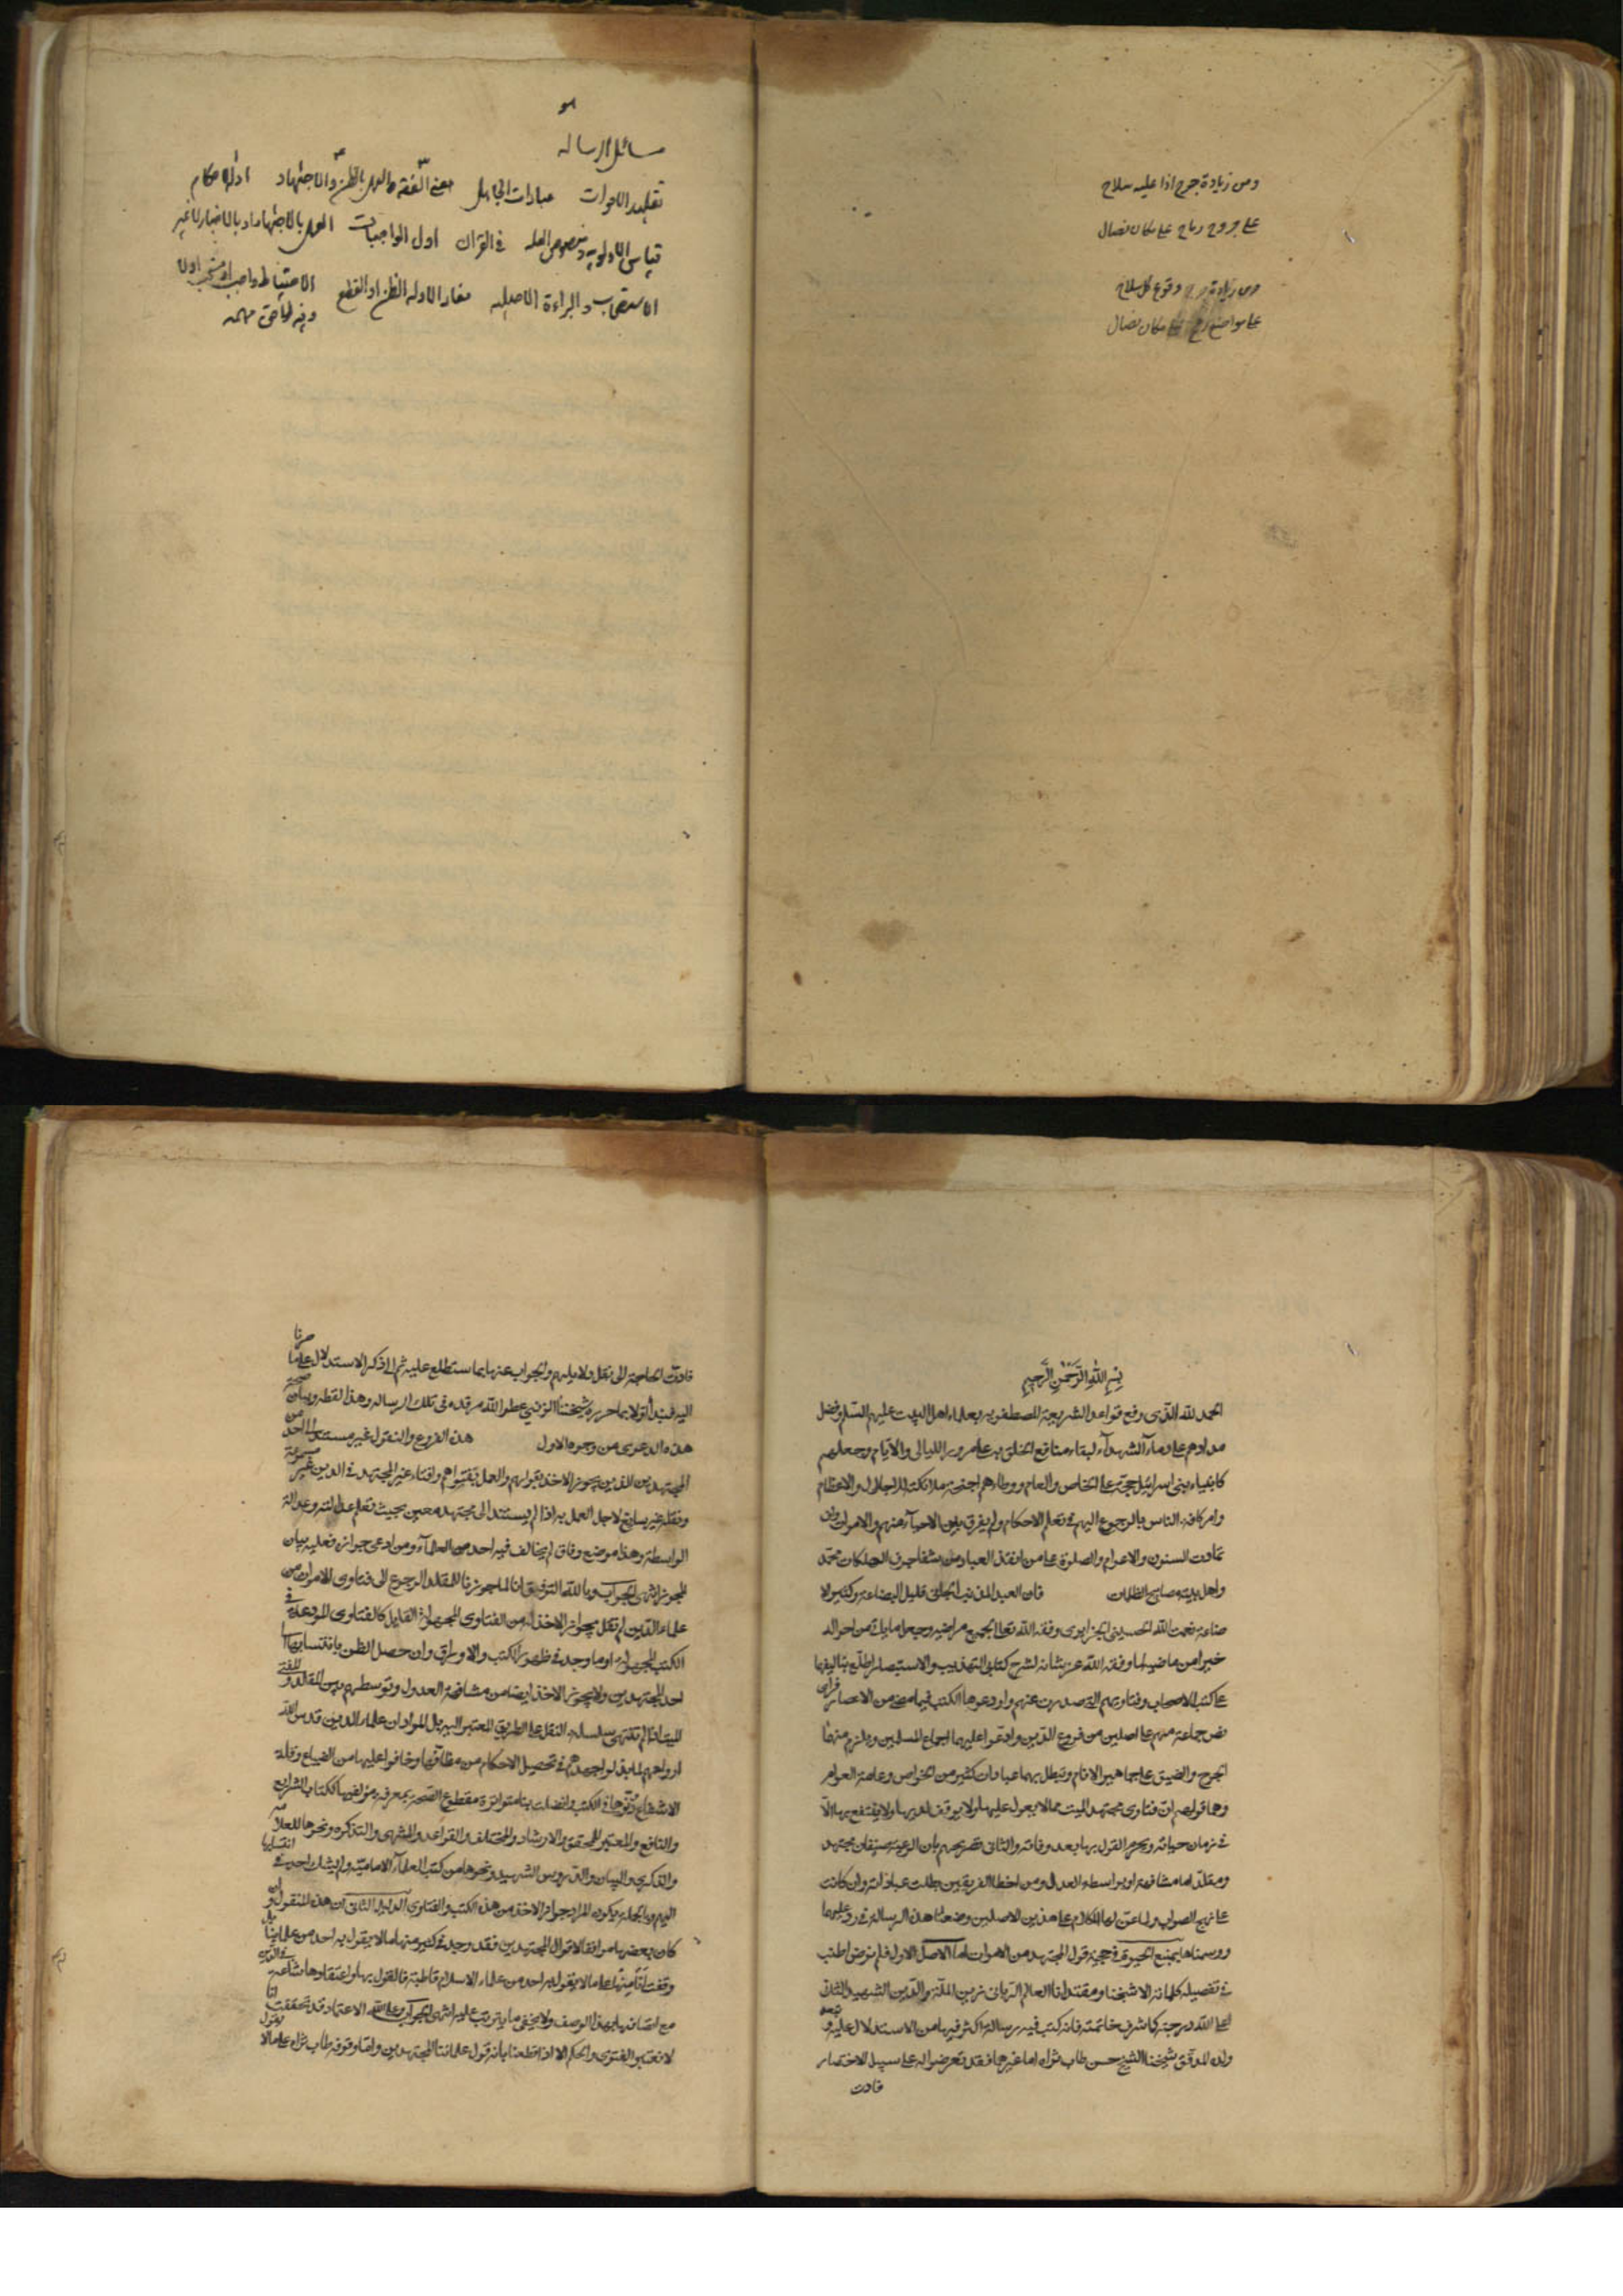 ومن زيادة جرح اذا عليه سلاح
على جروح رماح على مكان نصال
ومن زيادة وقوع كل سلاح
على مواضع مكان نصال
هو
مسائل الرسالة
تقليد الاموات عبادات الجاهل معنى الفقه والعمل بالظن والاجتهاد ادلة الاحكام
قياس الاولوية ومنصوص العلة في القران اول الواجبات العمل بالاجتهاد او بالاخبار لا غير
الاستصحاب والبراءة الاصلية مفاد الادلة الظن او القطع الاحتياط واجب او مستحب اولا
وفيه لواحق مهمه
بسم الله الرحمن الرحيم
الحمد لله الذي رفع قواعد الشريعة المصطفوية بعلماء اهل البيت عليهم السلم وفضل
مدادهم على دماء الشهداء لبقاء منافع الخلق به على مرور الليالي والايام وجعلهم
كانبياء بني اسرائيل حجة على الخاص والعام ووطاء لهم اجنحة ملائكته للاجلال والاعظام
وامر كافة الناس بالرجوع اليهم في تعلم الاحكام ولم يفرق بين الاحياء منهم والاموات وان
تمادت السنون والاعوام والصلوة على من انقذ العباد من شفا جرف الهلكات محمد
واهل بيته مصابيح الظلمات فان العبد المذنب الجاني قليل البضاعة وكثير الا
ضاعة نعمت الله الحسيني الجزايري وفقه الله تعالى لجميع مراضيه وجعل ما ياتي من احواله
خيرا من ماضيها لما وفقه الله عز شانه لشرح كتابي التهذيب والاستبصار اطلع بتاليفها
على كتب الاصحاب وفتاويهم التي صدرت عنهم واودعوها الكتب فيما مضى من الاعصار فراى
نص جماعة منهم على اصلين من فروع الدين وادعوا عليهما اجماع المسلمين ويلزم منهما
الحرج والضيق على جماهير الانام وتبطل بهما عبادات كثير من الخواص وعامة العوام
وهما قولهم ان فتاوى مجتهد الميت مما لا يعول عليها ولا يوقف لديها ولا ينتفع بها الا
في زمان حياته ويحرم القول بها بعد وفاته والثاني تصريحهم بان الرعية صنفان مجتهد
ومقلد له اما مشافهة او بواسطة العدل ومن اخطا الفريقين بطلت عباداته وان كانت
على نهج الصواب ولما عن لنا الكلام على هذين الاصلين وضعنا هذه الرسالة في رد عليهما
ووسمناها بمنبع الحيوة في حجية قول المجتهد من الاموات اما الاصل الاول فلم نر من اطنب
في تفصيله كلماته الا شيخنا ومقتدانا العالم الرباني زين الملة والدين الشهيد الثاني
اعلى الله درجته كما شرف خاتمته فانه كتب فيه رسالة اكثر فيها من الاستدلال عليه و
ولده المدقق شيخنا الشيخ حسن طاب ثراه اما غيرهما فقد تعرضوا له على سبيل الاختصار
فادت
فادت الحاجة الى نقل دلايلهم والجواب عنها بما ستطلع عليه ثم الى ذكر الاستدلال على ما صرنا
اليه فنبدا اولا بما حرره شيخنا الزيني عطر الله مرقده في تلك الرسالة وهذا لفظه وبيان صحة
هذه الدعوى من وجوه الاول هذه الفروع والنقول غير مستندة الى احد من
المجتهدين الذين يجوز الاخذ بقولهم والعمل بفتواهم وافتاء غير المجتهد في الدين غير مسموعة
ونقله غير سائغ لاجل العمل به اذا لم يستند الى مجتهد معين بحيث تعلم عدالته وعدالة
الواسطة وهذا موضع وفاق لم يخالف فيه احد من العلماء ومن ادعى جوازه فعليه بيان
المجوز انتهى الجواب وبالله التوفيق انا لما جوزنا للمقلد الرجوع الى فتاوى الاموات من
علماء الدين لم نقل بجواز الاخذ له من الفتاوى المجهولة القايل كالفتاوى المودعة في
الكتب المجهولة او ما وجد في ظهور الكتب والاوراق وان حصل الظن بانتسابها الى
احد المجتهدين ولا يجوز الاخذ ايضا من مشافهة العدول وتوسطهم بين المقلد والمفتي
الميت اذا لم تنتهي سلسلة النقل على الطريق المعتبر اليه بل المراد ان علماء الدين قدس الله
ارواحهم لما بذلوا جهدهم في تحصيل الاحكام من مظانها وخافوا عليها من الضياع وقلة
الانتفاع دونوها في الكتب واتصلت بنا متواترة مقطوع الصحة بمعرفة مؤلفيها ككتاب الشرايع
والنافع والمعتبر للمحقق والارشاد والمختلف والقواعد والمنتهى والتذكرة ونحوها للعلامة
والذكرى والبيان والدروس للشهيد ونحوها من كتب العلماء الامامية ولم يشك احد في انتسابها
اليهم وبالجملة يكون المراد جواز الاخذ من هذه الكتب والفتاوى الدليل الثاني ان هذه المنقولة وان
كان بعضها موافقا لاقوال المجتهدين فقد وجد في كثير منها ما لا يقول به احد من علمائنا بل
وقفت انا منها على ما لا يقول به احد من علماء الاسلام قاطبة فالقول بها واعتقادها شاعة في الدين
مع اتصافها بهذا الوصف ولا يخفى ما يترتب عليه انتهى الجواب وعلى الله الاعتماد قد تحققت انا
لا نعتبر الفتوى والحكم الا اذا قطعنا بانه قول علمائنا المجتهدين واما وقوفه طاب ثراه على ما لا يقول